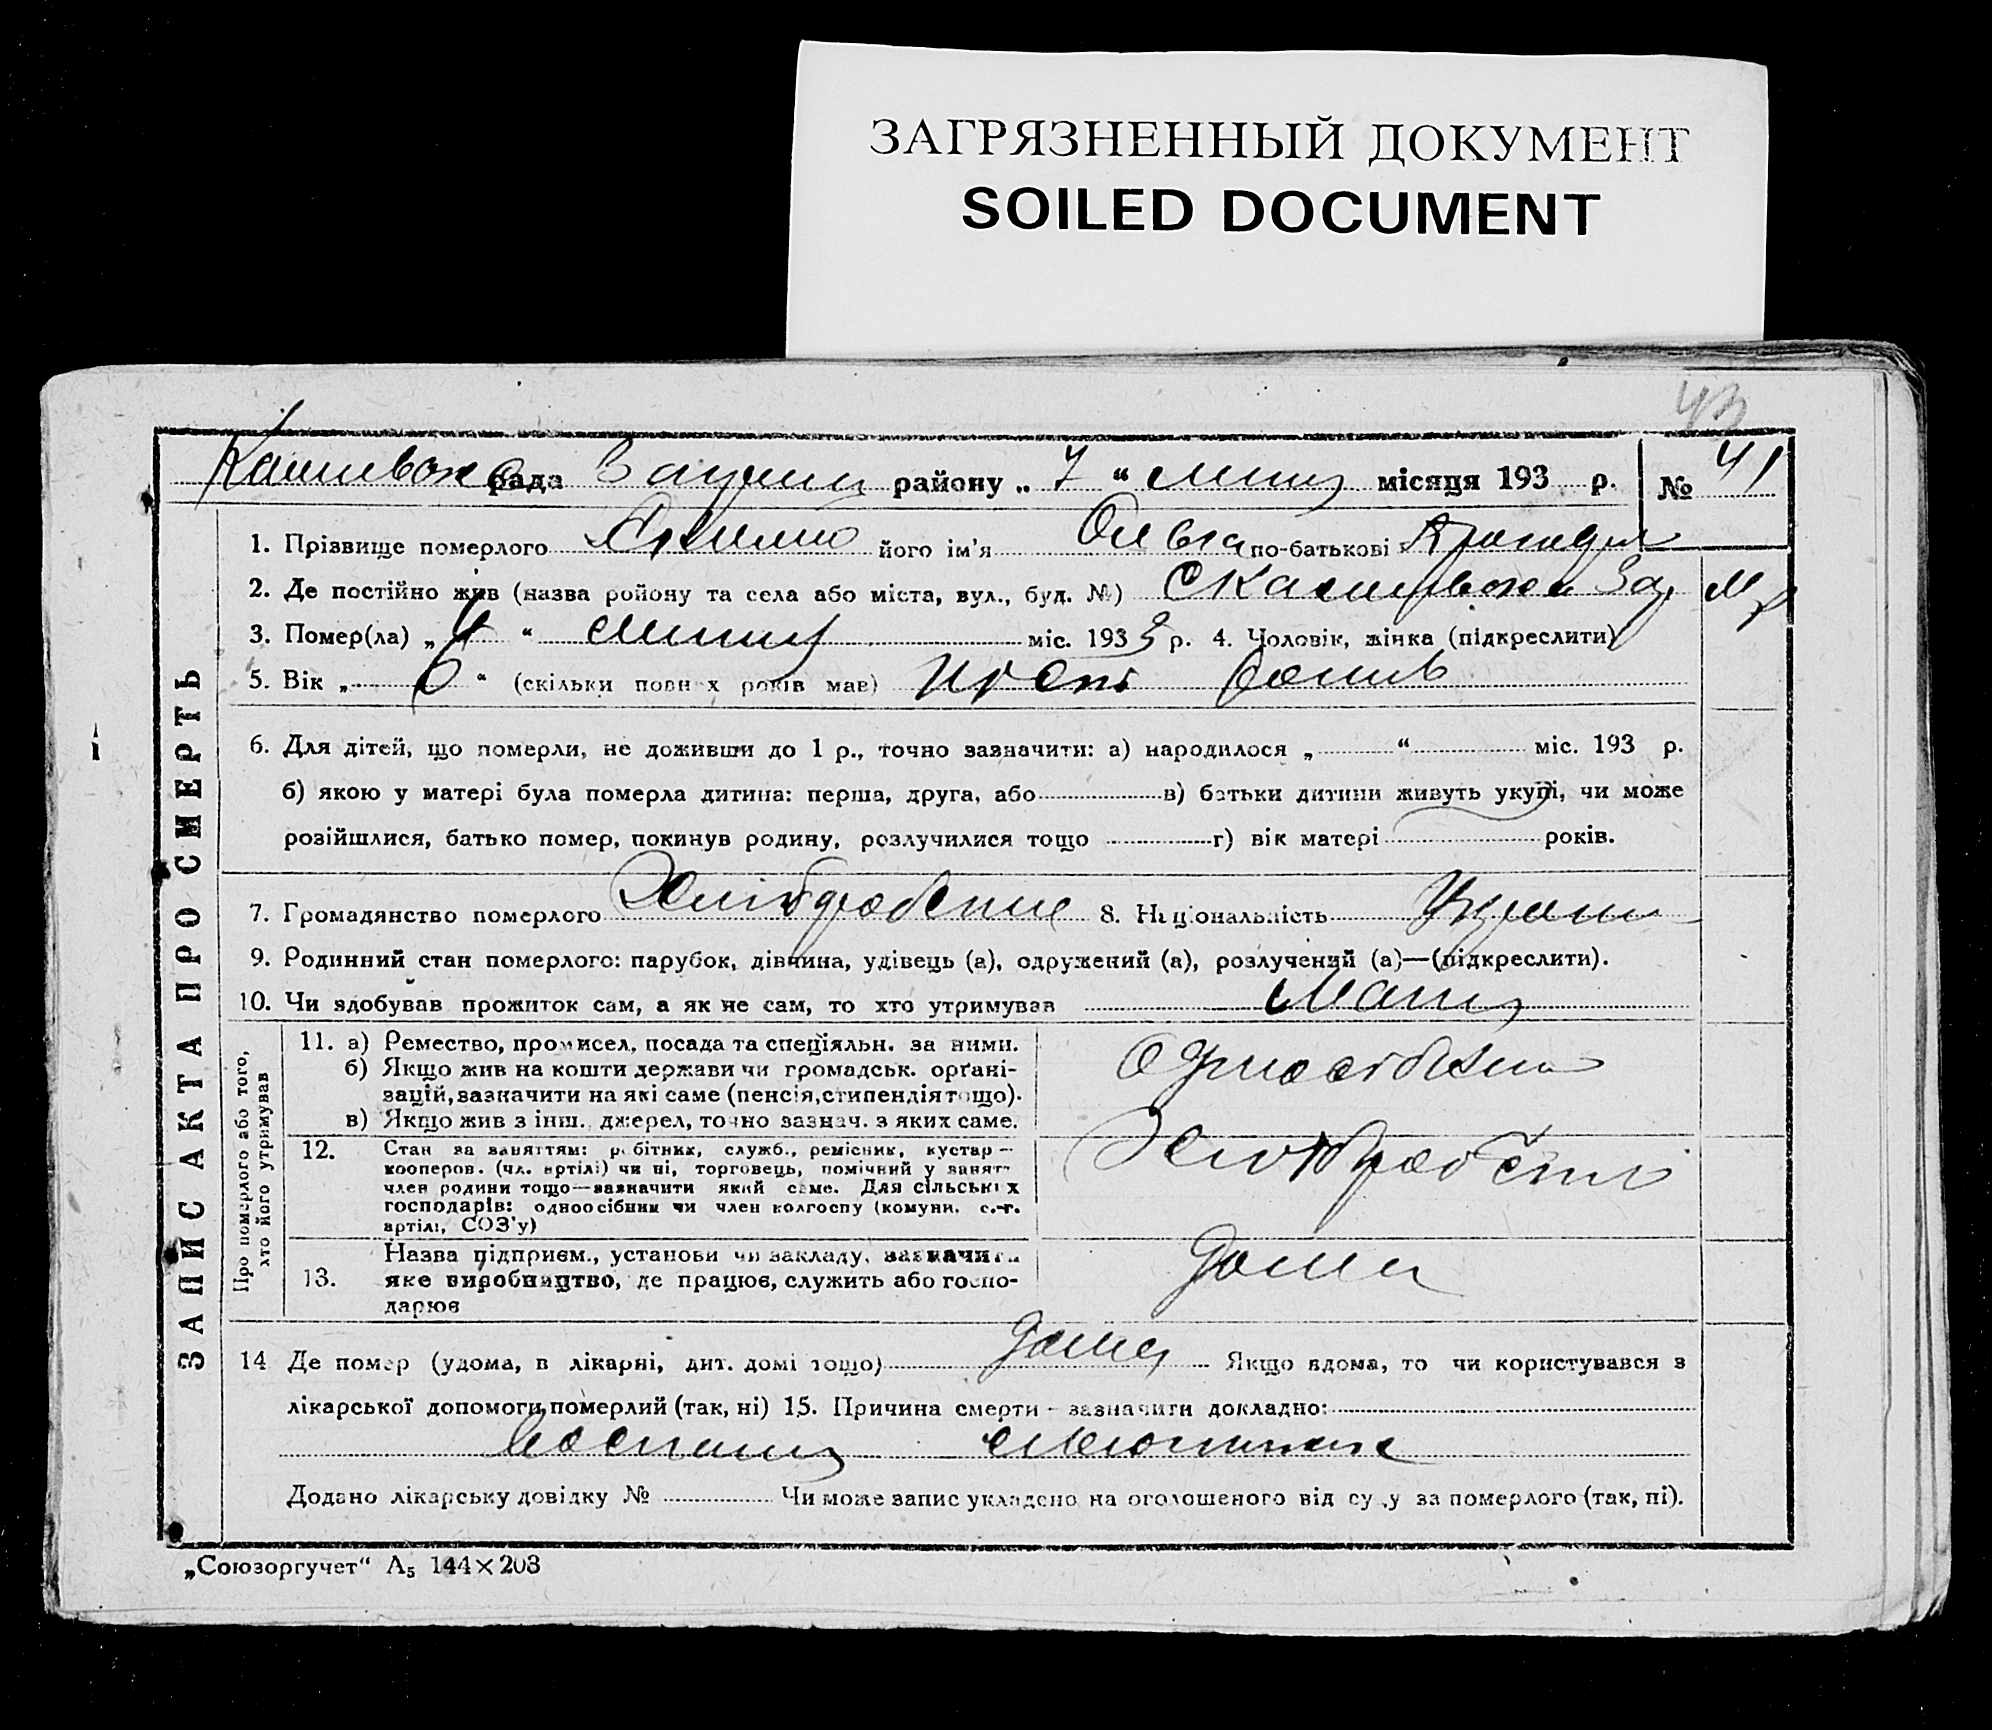 ЗАГРЯЗНЕННЫЙ ДОКУМЕНТ
SOILED DOCUMENT
43
рада району „ 7 “ місяця 193 р. № 41
1. Прізвище померлого його ім'я Ольга по-батькові
2. Де постійно жив (назва ройону та села або міста, вул., буд. №)
3. Помер(ла) „ “ міс. 1933 р. 4. Чоловік, жінка (підкреслити)
5. Вік „ 6 “ (скільки повних років мав)
6. Для дітей, що померли, не доживши до 1 р., точно зазначити: а) народилося „ “ міс. 193 р.
б) якою у матері була померла дитина: перша, друга, або в) батьки дитини живуть укупі, чи може
розійшлися, батько помер, покинув родину, розлучилися тощо г) вік матері років.
7. Громадянство померлого 8. Національність Украин
9. Родинний стан померлого: парубок, дівчина, удівець (а), одружений (а), розлучений (а)—(підкреслити).
10. Чи здобував прожиток сам, а як не сам, то хто утримував Мати
ЗАПИС АКТА ПРО СМЕРТЬ
Про померлого або того,
хто його утримував
11. а) Ремество, промисел, посада та спеціяльн. за ними.
б) Якщо жив на кошти держави чи громадськ. орґані-
зацій, зазначити на які саме (пенсія, стипендія тощо).
в) Якщо жив з інш. джерел, точно зазнач. з яких саме.
12. Стан за заняттям: робітник, служб., ремісник, кустар—
кооперов. (чл. артілі) чи ні, торговець, помічний у занят-
член родини тощо—зазначити який саме. Для сільських
господарів: одноосібник чи член колгоспу (комуни, с.-г.
артілі, СОЗ'у)
13. Назва підприєм., установи чи закладу, зазначити
яке виробництво, де працює, служить або госпо-
дарює
дома
14 Де помер (удома, в лікарні, дит. домі тощо) дома Якщо вдома, то чи користувався з
лікарської допомоги померлий (так, ні) 15. Причина смерти - зазначити докладно:
Додано лікарську довідку № Чи може запис укладено на оголошеного від суду за померлого (так, ні).
„Союзоргучет“ А₅ 144×203